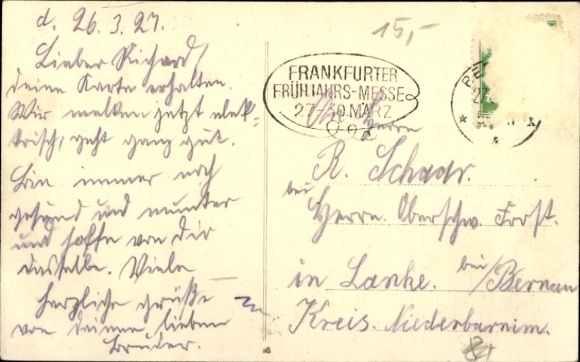 d. 26.3.27.
Lieber Richard,
deine Karte erhalten.
Wir melken jetzt elek-
trisch, geht ganz gut.
Bin immer noch
gesund und munter
und hoffe von dir
dasselbe. Viele
herzliche Grüße
von deinem lieben
Bruder.
15,-
FRANKFURTER
FRÜHJAHRS-MESSE
27.-30. MÄRZ
Herrn
R. Schaar.
bei
Herrn. Oberschw. Forst.
in Lanke. bei/Bernau
Kreis. Niederbarnim.